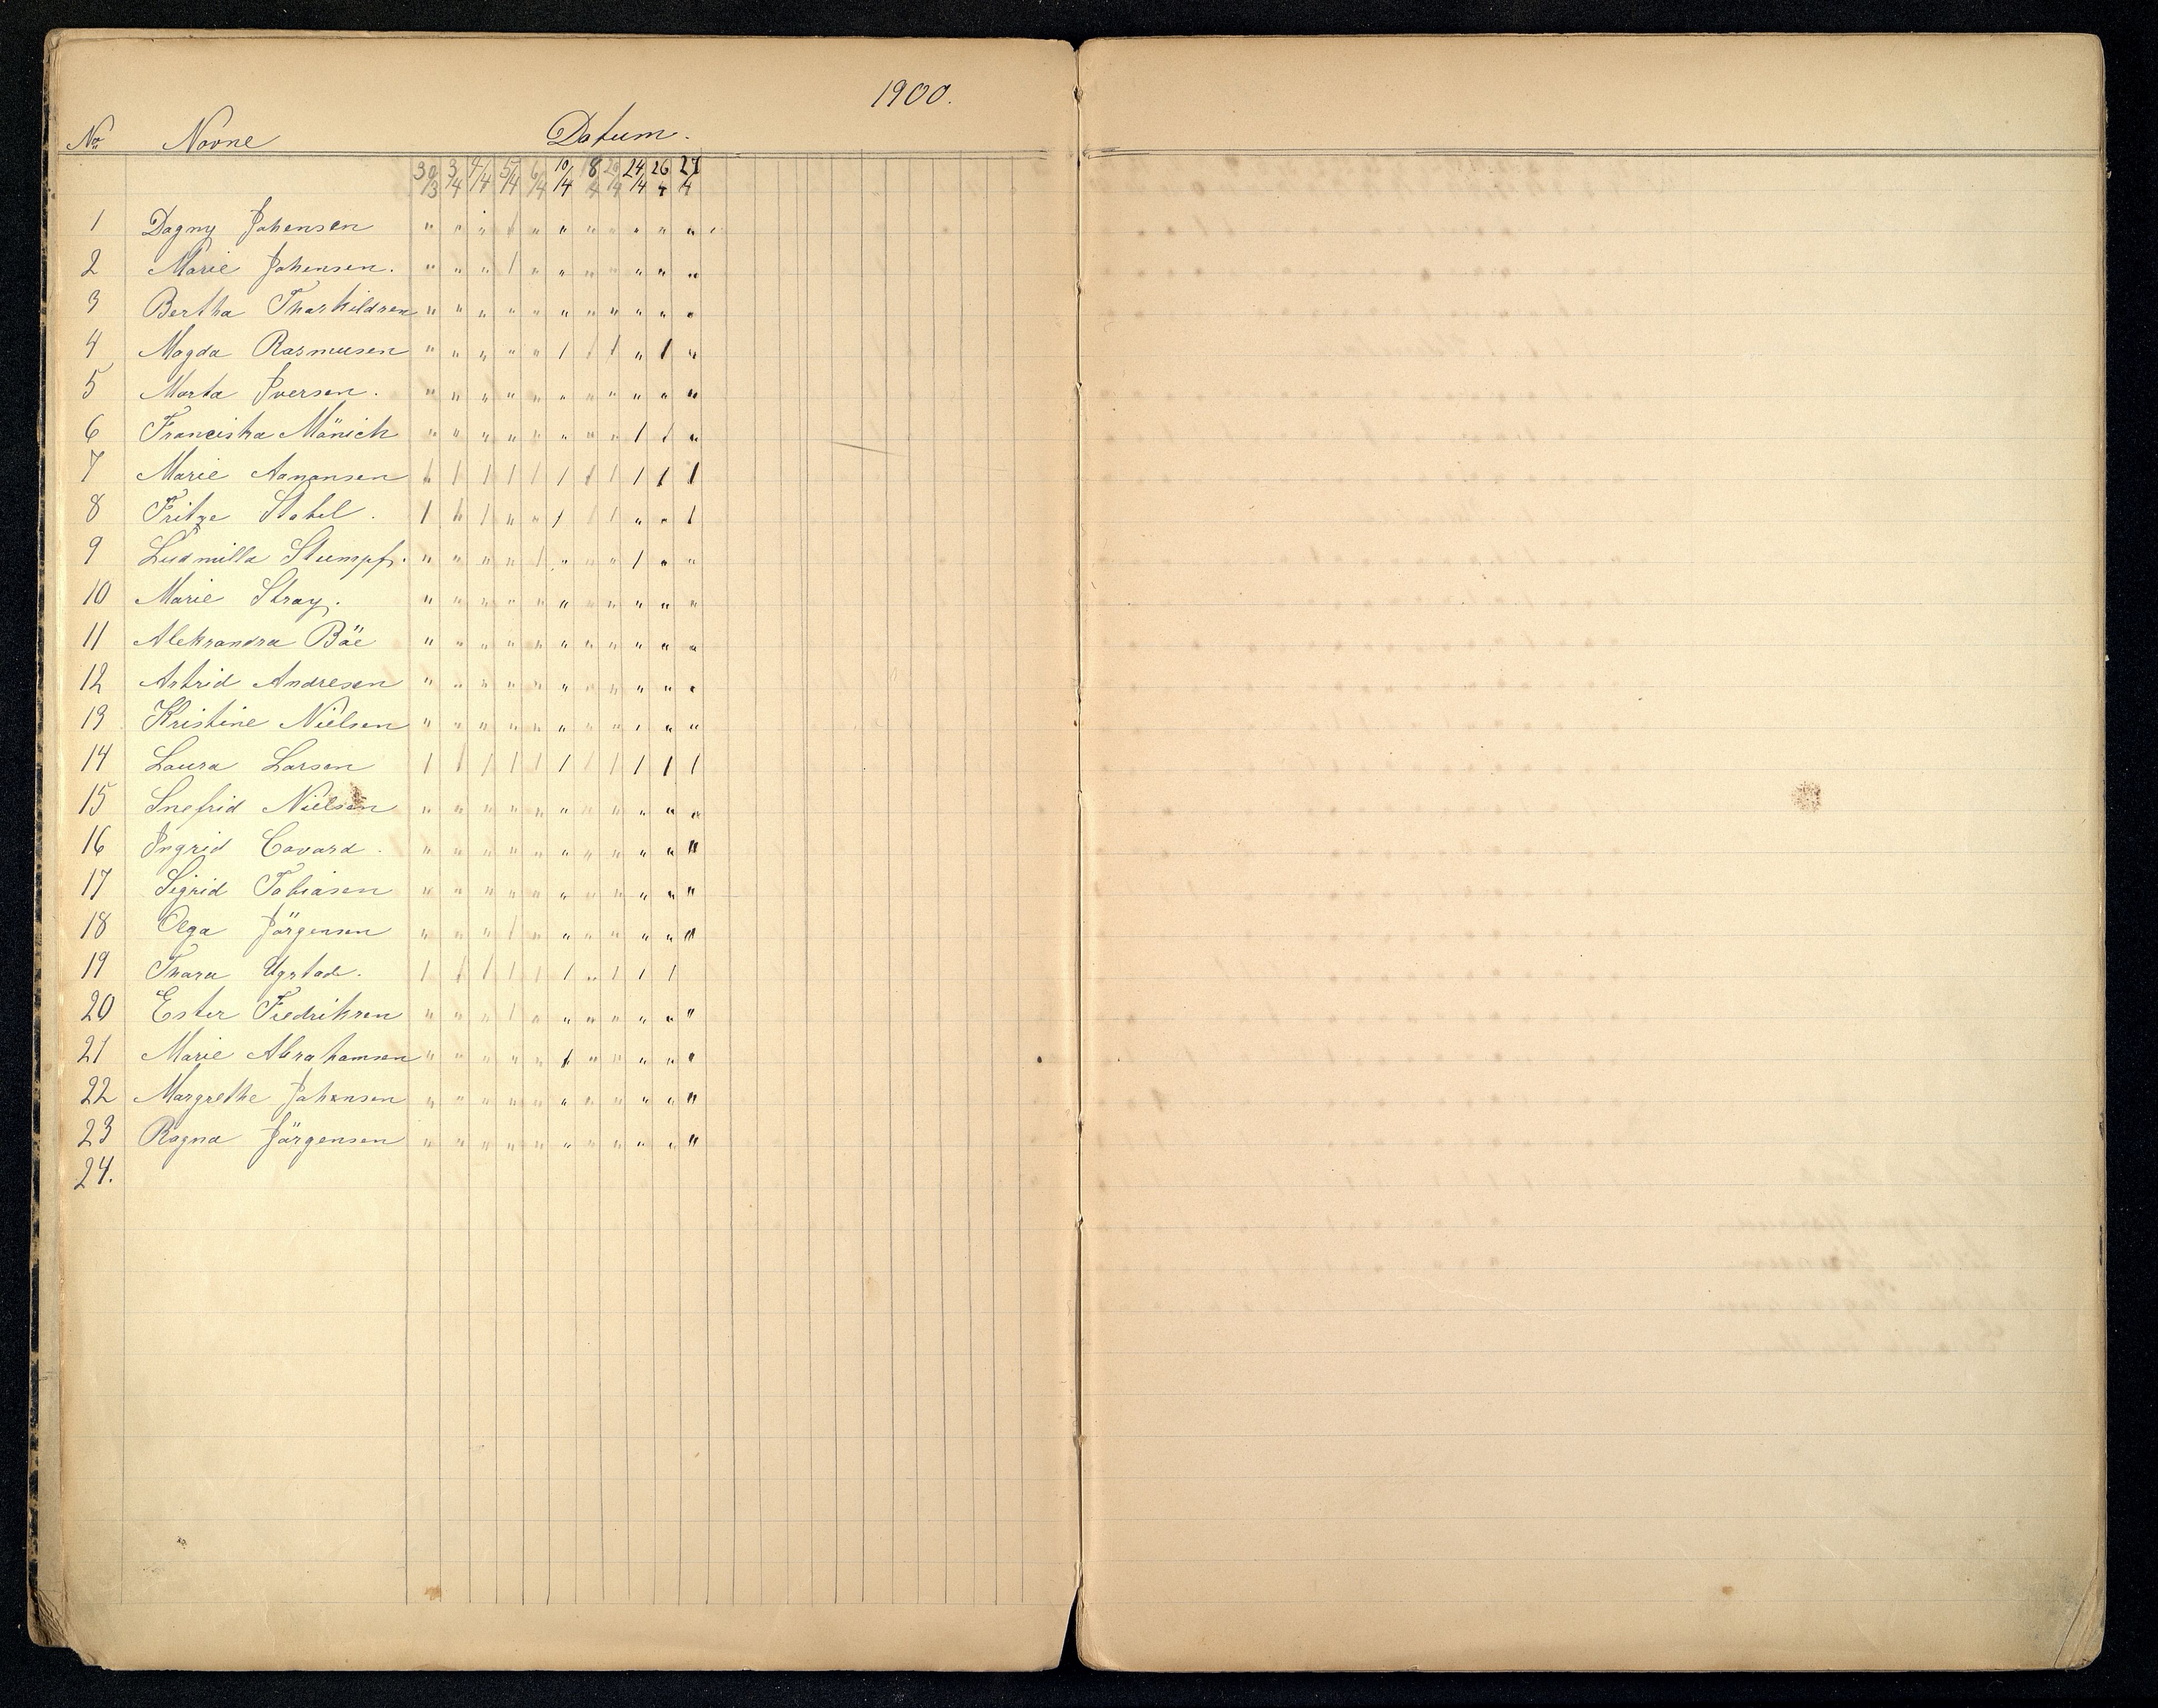 1900.
No Navne Datum.
30/3 3/4 4/4 5/4 6/4 10/4 18/4 20/4 24/4 26/4 27/4
1 Dagny Johensen " " " / " " " " " " "
2 Marie Johensen. " " " / " " " " " " "
3 Bertha Tharkildsen " " " " " " " " " " "
4 Magda Rasmusen " " " " " / / / " / "
5 Marta Iversen. " " " " " " " " " " "
6 Franciska Mönich " " " " " " " " / / "
7 Marie Aamonsen / / / / / / / / / / /
8 Fritze Stabel. / / / " " / / / " " /
9 Ludmilla Stumpf. " " " " / " " " / " "
10 Marie Stray. " " " " " " " " " " "
11 Aleksandra Böe " " " " " " " " " " "
12 Astrid Andresen " " " " " " " " " " "
13 Kristine Nielsen " " " " " " " " " " "
14 Laura Larsen / / / / / / / / / / /
15 Snefrid Nielsen " " " " " " " " " " "
16 Ingrid Cavard. " " " " " " " " " " "
17 Sigrid Tobiasen " " " " " " " " " " "
18 Olga Jörgensen " " " / " " " " " " "
19 Thara Ugstad. / / / / / / " / / /
20 Ester Fredriksen " " " / " " " " " " "
21 Marie Abrahamsen " " " " " / " " " " "
22 Margrethe Johensen " " " " " " " " " " "
23 Ragna Jörgensen " " " " " " " " " " "
24.